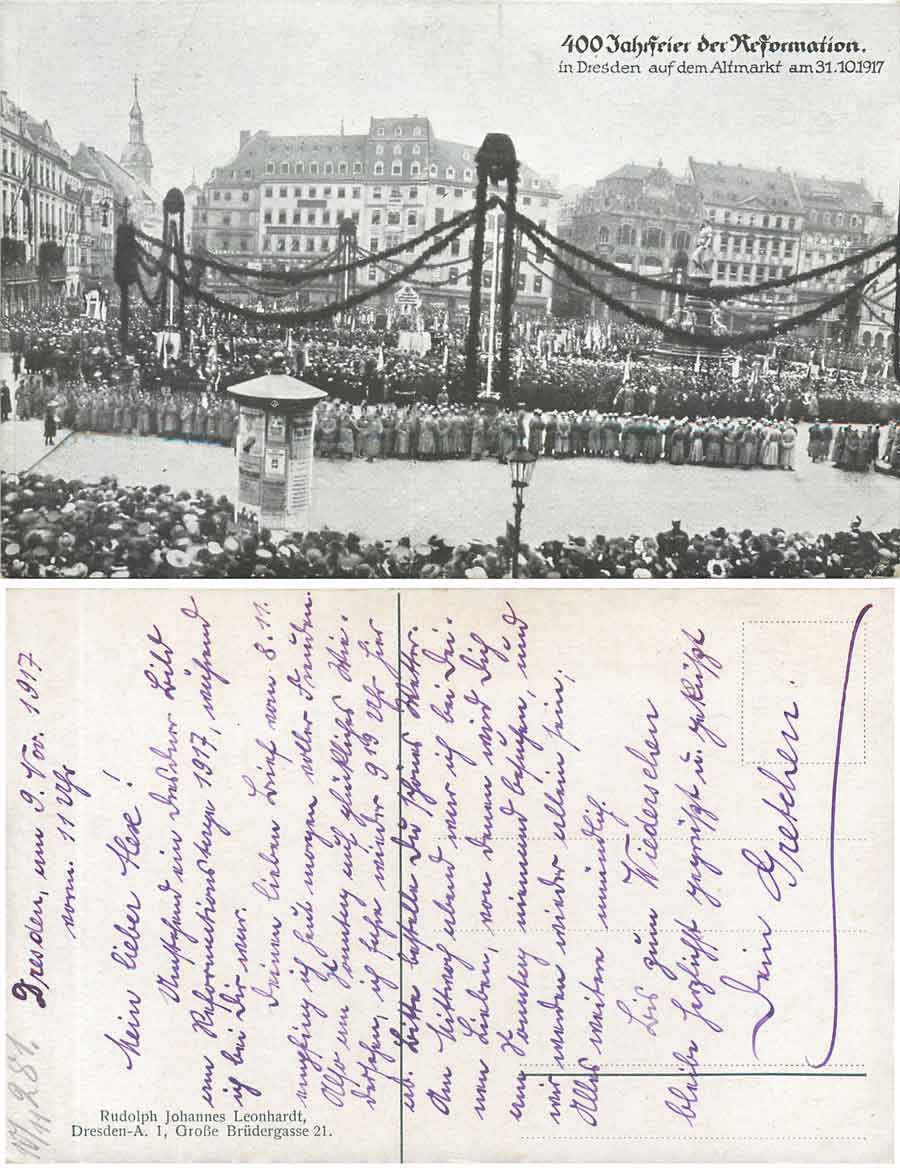 400 Jahrfeier der Reformation.
in Dresden auf dem Altmarkt am 31.10.1917
Dresden, am 9. Nov. 1917
vorm. 11 Uhr
Mein lieber Alex!
Umstehend ein Dresdner Bild
am Reformationstage 1917, während
ich bei Dir war.
Deinen lieben Brief vom 8.11.
empfing ich heut morgen voller Freuden.
Also am Sonntag auf glückliches Wie-
dersehen, ich fahre wieder 9 19 Uhr hier
ab. Bitte bestelle Du schönes Wetter.
Am Mittwoch abend war ich bei Dei-
nen Lieben, von denen wird Dich
am Sonntag niemand besuchen, und
wir werden wieder allein sein,
Alles weitere mündlich
Bis zum Wiedersehen
bleibe herzlichst gegrüßt u. geküßt
Dein Gretchen.
Rudolph Johannes Leonhardt,
Dresden-A. 1, Große Brüdergasse 21.